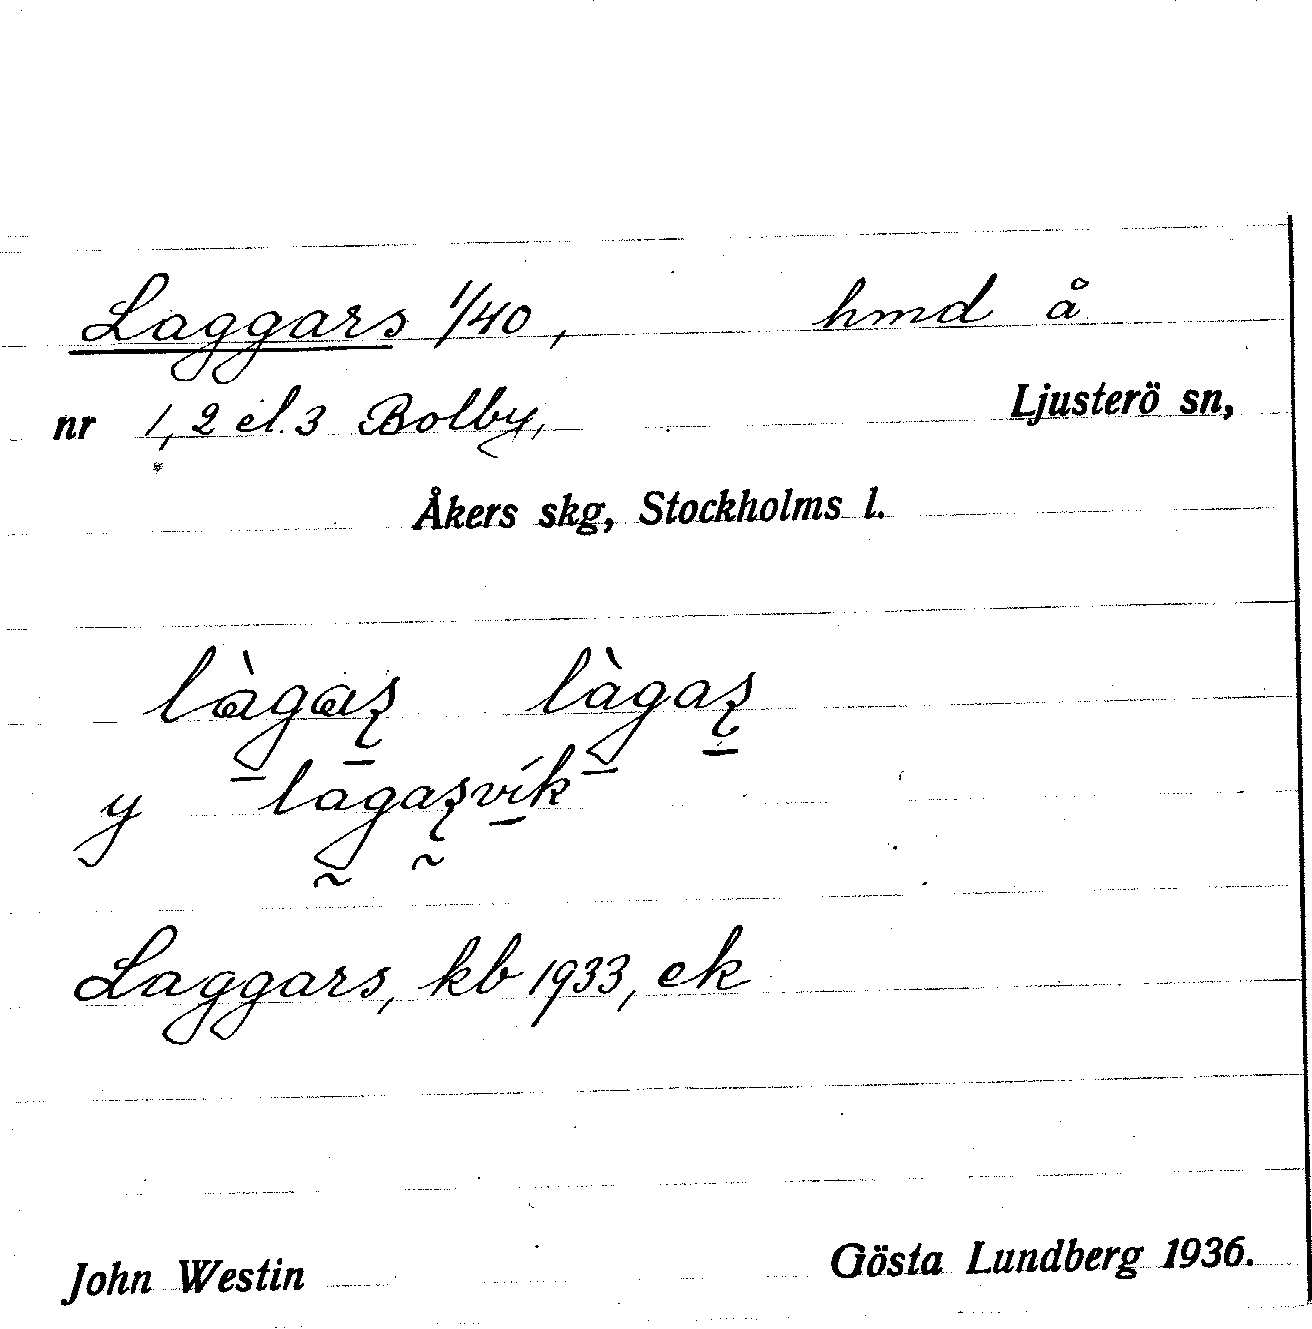 Laggars 1/40, hmd å
nr 1, 2 el. 3 Bolby, Ljusterö sn,
Åkers skg, Stockholms l.
làgaʂ làgaʂ
y lagaʂvík
Laggars, kb 1933, ek
John Westin Gösta Lundberg 1936.